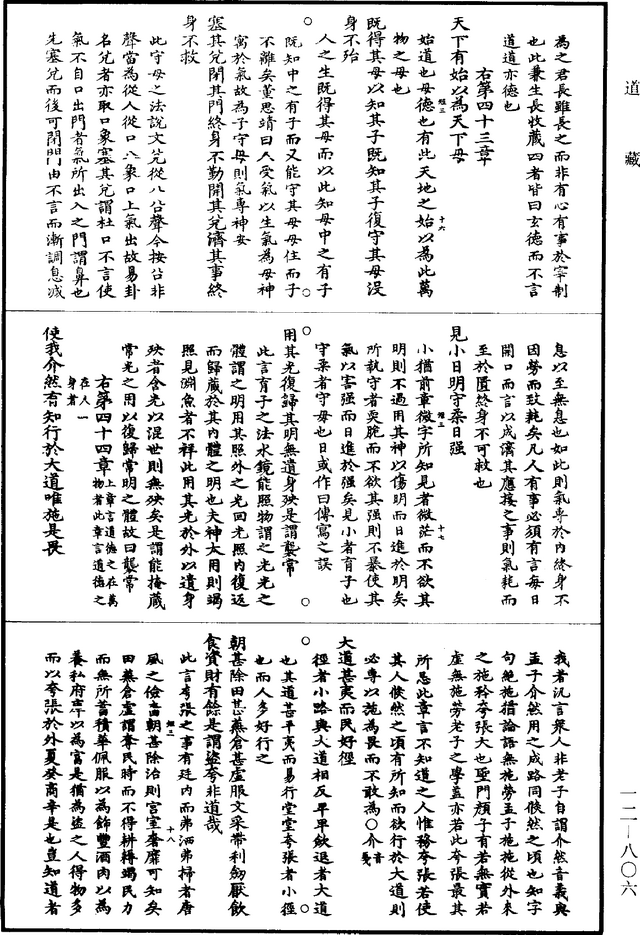 道藏
為之君長雖長之而非有心有事於宰制
也此兼生長收藏四者皆曰玄德而不言
道道亦德也
右第四十三章
天下有始以為天下母
始道也母德也有此天地之始以為此萬
物之母也
既得其母以知其子既知其子復守其母沒
身不殆
人之生既得其母而以此知母中之有子
既知中之有子而又能守其母母住而子
不離矣董思靖曰人受氣以生氣為母神
寓於氣故為子守母則氣專神安
塞其兌閉其門終身不勤開其兌濟其事終
身不救
此守母之法說文兌從八㕣聲今按㕣非
聲當為從人從口八象口上氣出故易卦
名兌者亦取口象塞其兌謂杜口不言使
氣不自口出門者氣所出入之門謂鼻也
先塞兌而後可閉門由不言而漸調息減
經三 十六
息以至無息也如此則氣專於內終身不
因勞而致耗矣凡人有事必須有言每日
開口而言以成濟其應接之事則氣耗而
至於匱終身不可救也
見小曰明守柔日強
小猶前章微字所知見者微茫而不欲其
明則不過用其神以傷明而日進於明矣
所執守者耎脆而不欲其強則不暴使其
氣以害強而日進於強矣見小者育子也
守柔者守母也日或作曰傳寫之誤
用其光復歸其明無遺身殃是謂襲常
此言育子之法水鏡能照物謂之光光之
體謂之明用其照外之光回光照內復返
而歸藏於其內體之明也夫神太用則竭
照見淵魚者不祥此用其光於外以遺身
殃者含光以混世則無殃矣是謂能掩藏
常光之用以復歸常明之體故曰襲常
右第四十四章上章言道德之在萬物者此章言道德之在人一身者
使我介然有知行於大道唯施是畏
經三 十七
我者汎言衆人非老子自謂介然音義與
孟子介然用之成路同倏然之頃也知字
句絕施猶論語無施勞孟子施施從外來
之施矜夸張大也聖門顏子有若無實若
虛無施勞老子之學蓋亦若此夸張最其
所忌此章言不知道之人惟務夸張若使
其人倏然之頃有所知而欲行於大道則
必專以施為畏而不敢為○介音戛
大道甚夷而民好徑
徑者小路與大道相反平卑歛退者大道
也其道甚平夷而易行堂堂夸張者小徑
也而人多好行之
朝甚除田甚蕪倉甚虛服文采帶利劒厭飲
食資財有餘是謂盜夸非道哉
此言夸張之事有廷內而弗洒弗掃者唐
風之儉嗇朝甚除治則宮室奢靡可知矣
田蕪倉虛謂奪民時而不得耕耨竭民力
而無所蓄積華佩服以為飾豐酒肉以為
養私府庫以為富是猶為盜之人得物多
而以夸張於外夏癸商辛是也豈知道者
經三 十八
一二—八〇六